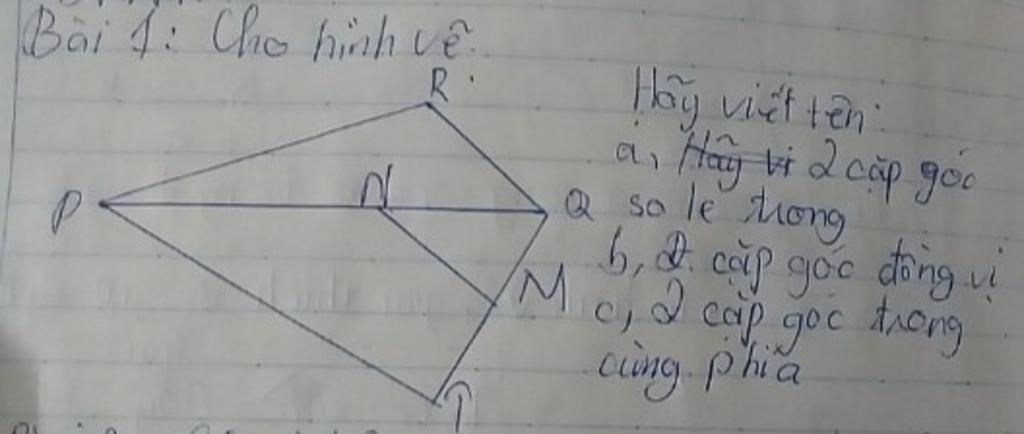 Bài 1: Cho hình vẽ.
R
Hãy viết tên:
a, Hãy vi 2 cặp góc
P
N
Q
so le trong
b, 2 cặp góc đồng vị
M
c, 2 cặp góc trong
cùng phía
T